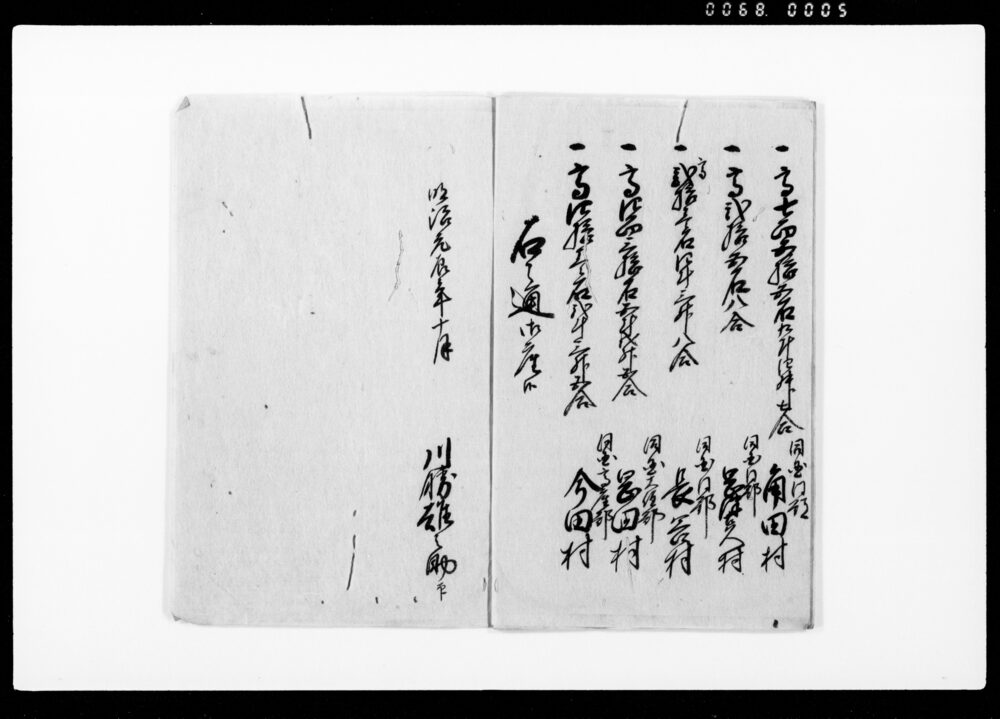 0068. 0005
一高七百五拾五石九斗四升七合
同国同郡
角田村
一高弐拾五石八合
同国同郡
村
一高弐拾壱石四斗三升八合
同国同郡
長谷村
一高弐百三拾石五斗弐升五合
同国大住郡
岡田村
一高弐拾壱石弐斗三升五合
同国高座郡
今田村
右之通御座候
明治元辰年十月
川勝雄之助